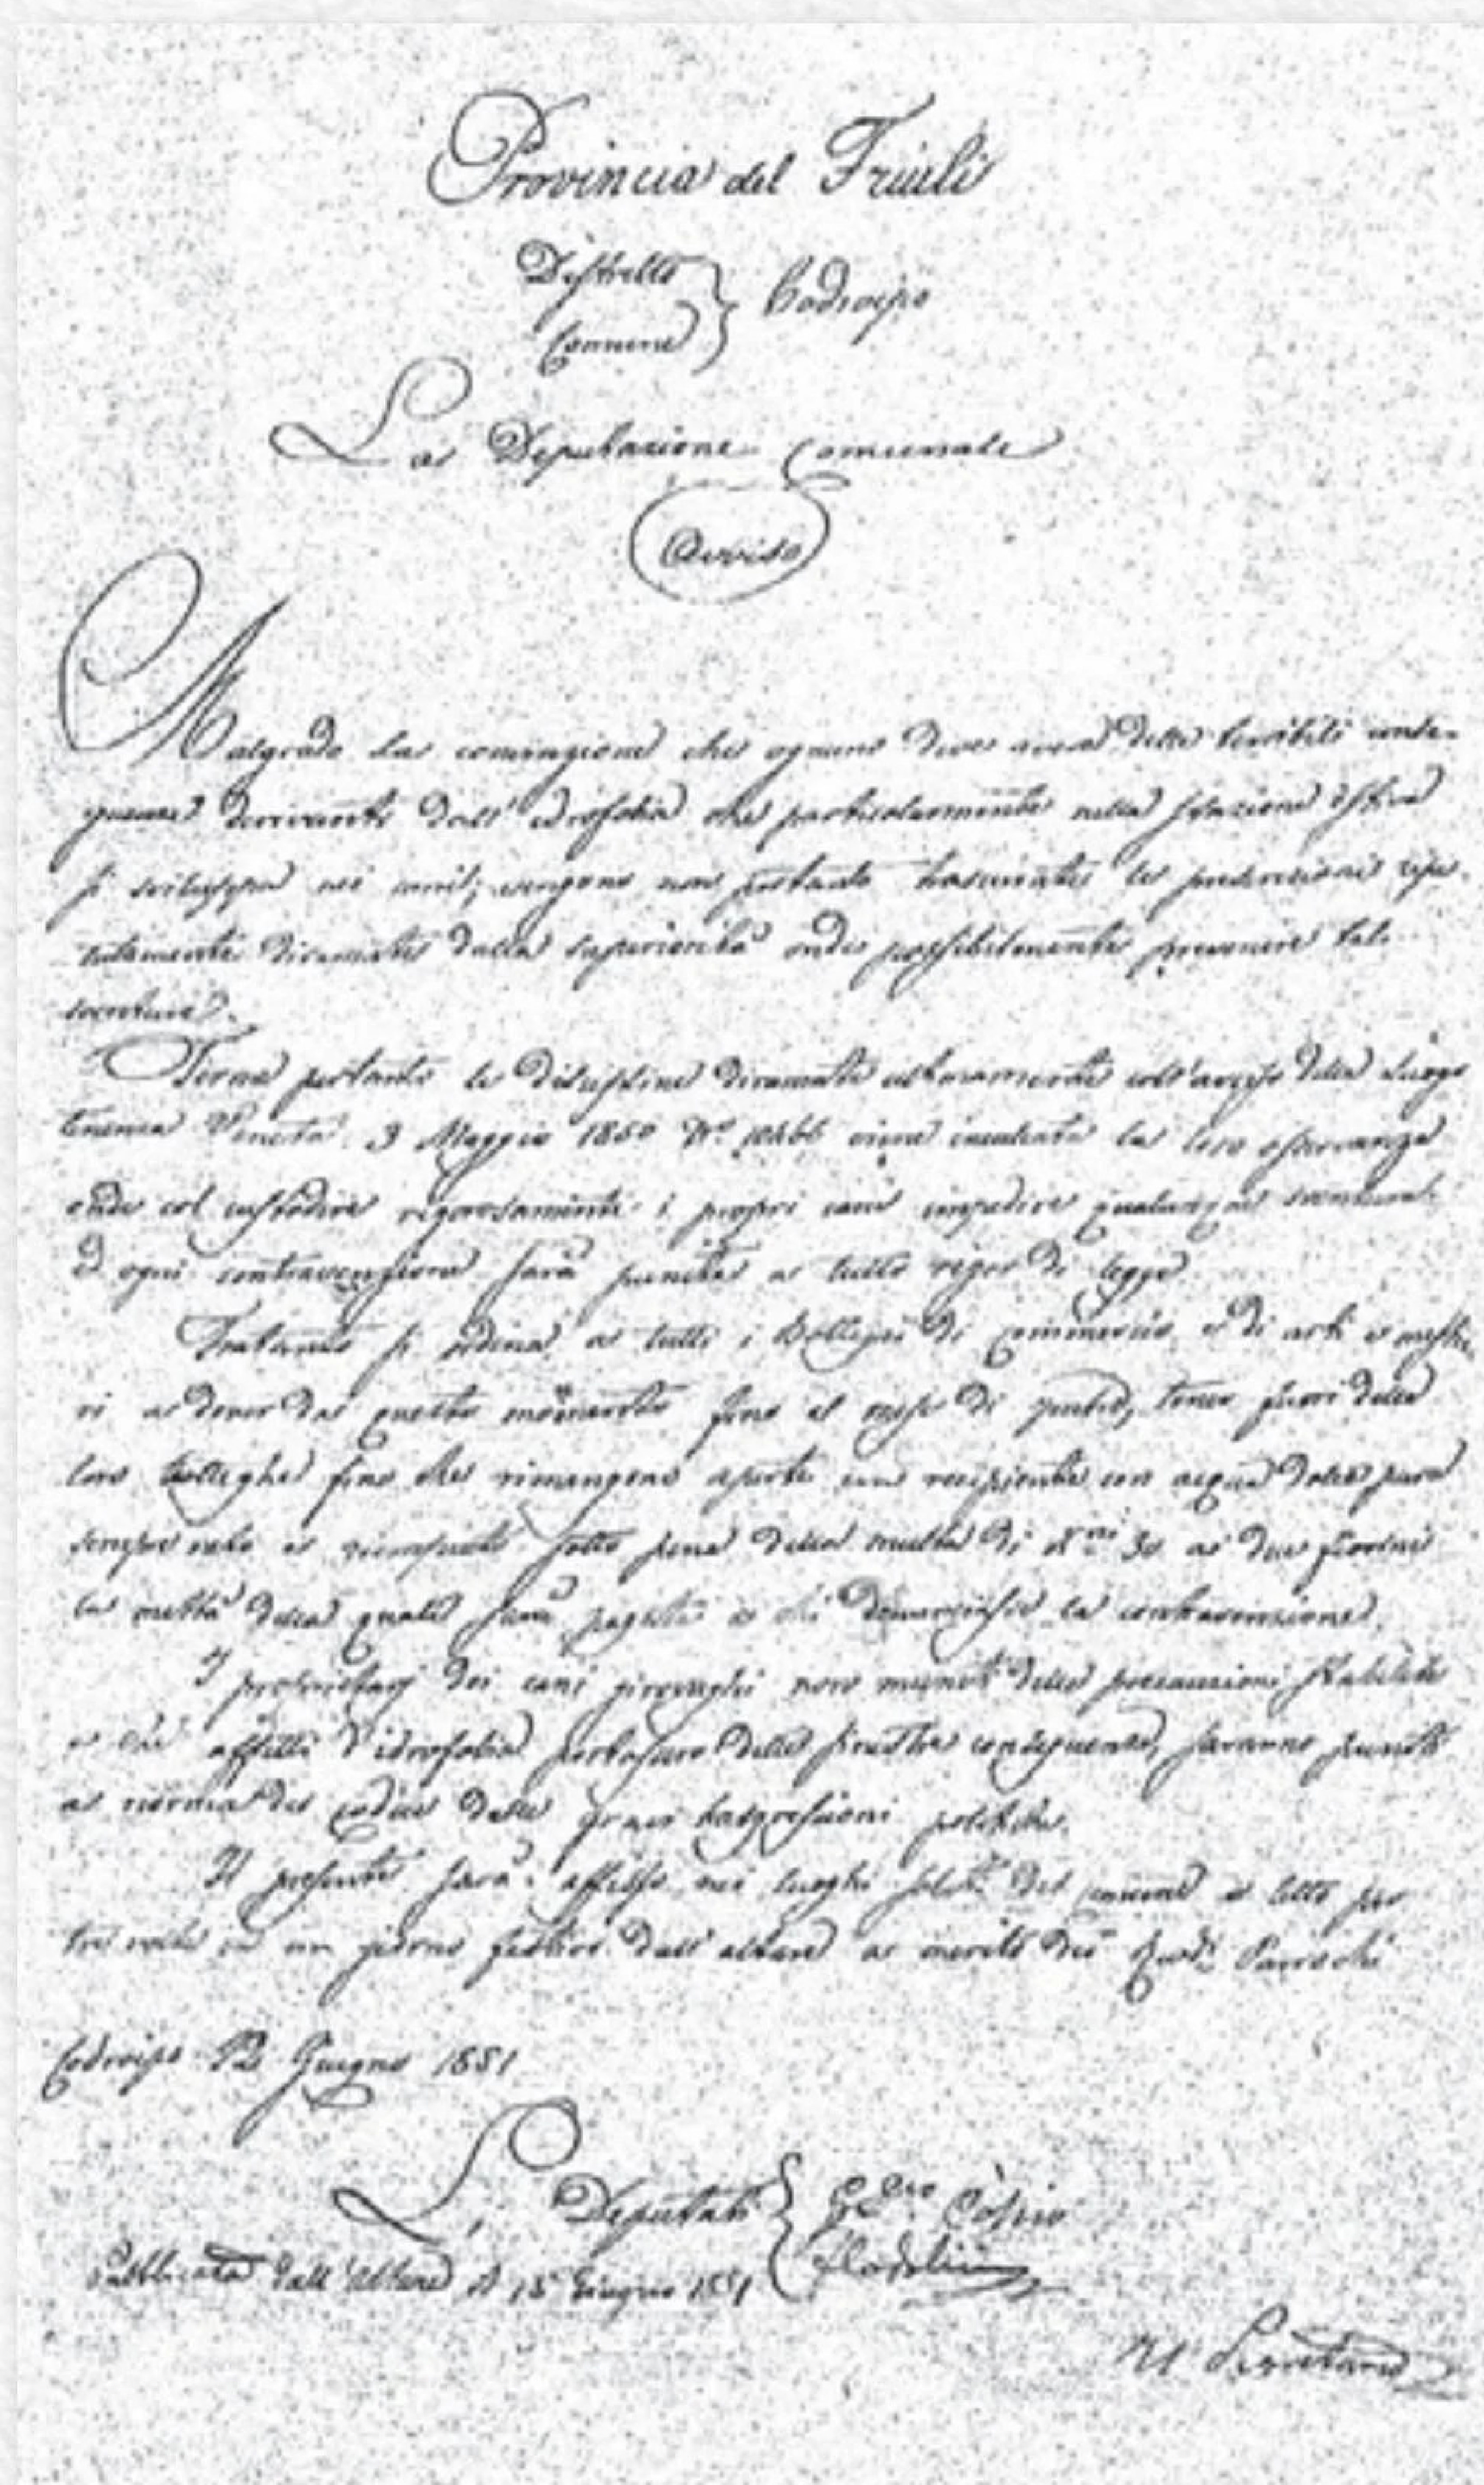 Provincia del Friuli
Distretto
Comune } Codroipo
La Deputazione Comunale
Avviso
Malgrado la convinzione che ognuno deve avere delle terribili conse-
guenze derivanti dall'idrofobia che particolarmente nella stazione estiva
si sviluppa nei cani; vengono non pertanto trascurate le precauzioni ripe-
tutamente diramate dalla superiorità onde possibilmente prevenire tali
sventure.
Ferme pertanto le discipline diramate ulteriormente coll'avviso della Luogo
tenenza Veneta 3 Maggio 1850 N.° viene inculcata la loro osservanza
onde col custodire rigorosamente i propri cani impedire qualunque sventura
Ed ogni contravenzione sarà punita a tutto rigor di legge
Frattanto si ordina a tutti i Bottegai di Commercio e di arti e mestie
ri a dover da questo momento fino il mese di tener fuori delle
loro botteghe fino che rimangono aperte un recipiente con acqua dolce pura
sempre netto e riempiuto sotto pena della multa di 30 a due fiorini
la mettà della quale sarà pagata a chi denunciasse la contravenzione.
I proprietarj dei cani girovaghi non muniti delle precauzioni stabilite
affetti d'idrofobia delle sinistre conseguenze, saranno puniti
a norma del codice delle gravi trasgressioni politiche.
Il presente sarà affisso nei luoghi soliti del comune e letto per
tre volte in un giorno festivo dall'altare a merito dei Parrochi
Codroipo 12 Giugno 1851
Li Deputati {
Pubblicata dall'Altare il 15 Giugno 1851
Il Segretario